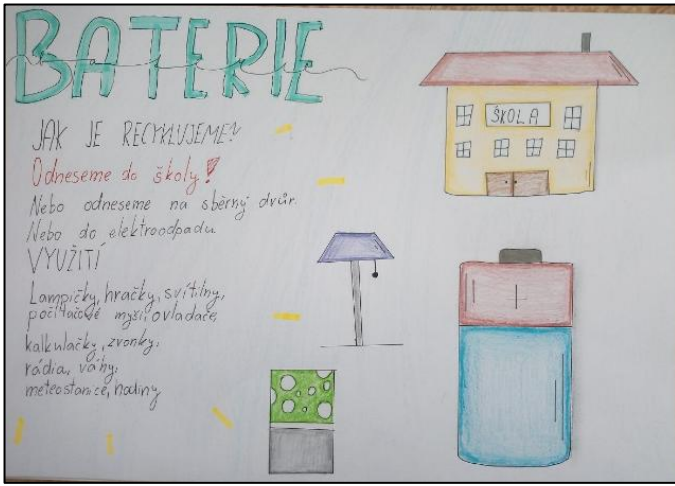 BATERIE
JAK JE RECYKLUJEME?
Odneseme do školy!
Nebo odneseme na sběrný dvůr.
Nebo do elektroodpadu
VYUŽITÍ
Lampičky, hračky, svítilny,
počítačové myši, ovladače,
kalkulačky, zvonky,
rádia, váhy,
meteostanice, hodiny
ŠKOLA